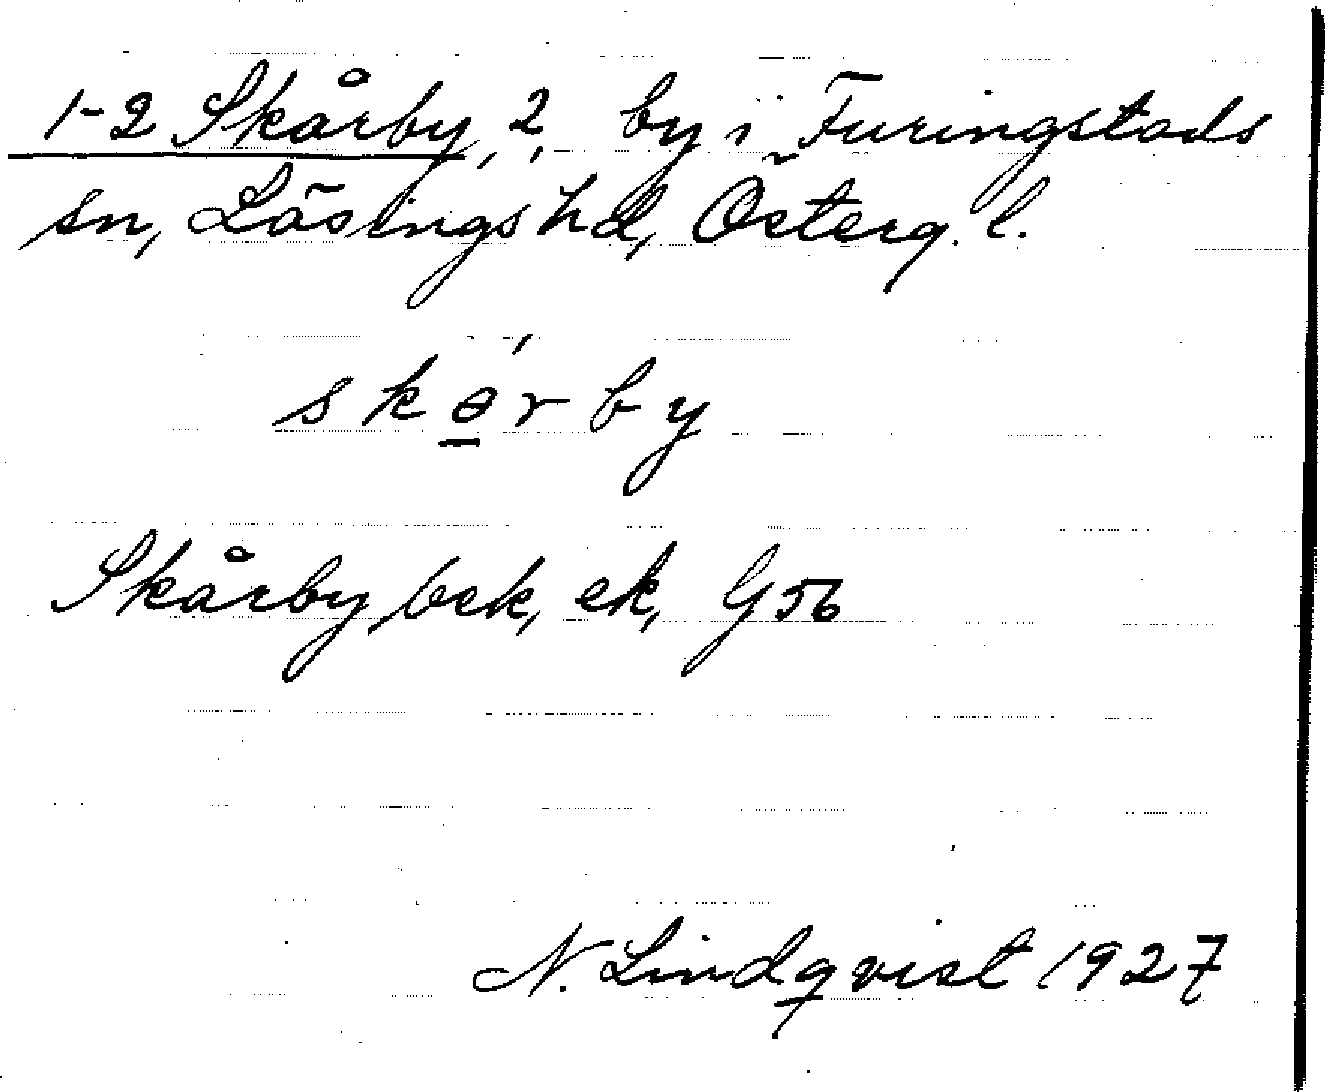 1-2 Skårby, 2, by i Furingstads
sn, Lösings hd, Österg. l.
skɵ̲́rby
Skårby bek, ek, G56
N. Lindqvist 1927